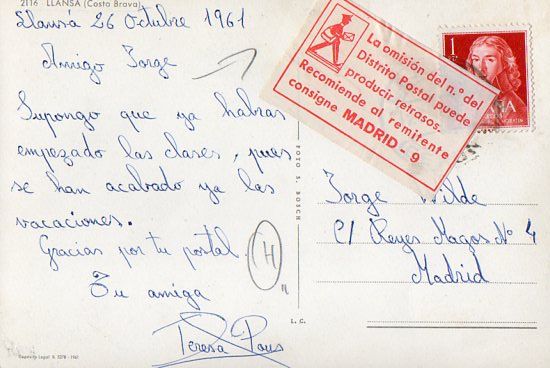 2116 LLANSA (Costa Brava)
Llansá 26 Octubre 1961
Amigo Jorge
Supongo que ya habras
empezado las clases, pues
se han acabado ya las
vacaciones.
Gracias por tu postal.
Tu amiga
Teresa Pous
H
Depósito Legal B. 5378 - 1961
FOTO S. BOSCH
L. C.
La omisión del n.º del
Distrito Postal puede
producir retrasos.
Recomiende al remitente
consigne MADRID - 9
1
Jorge Wilde
C/ Reyes Magos Nº 4
Madrid